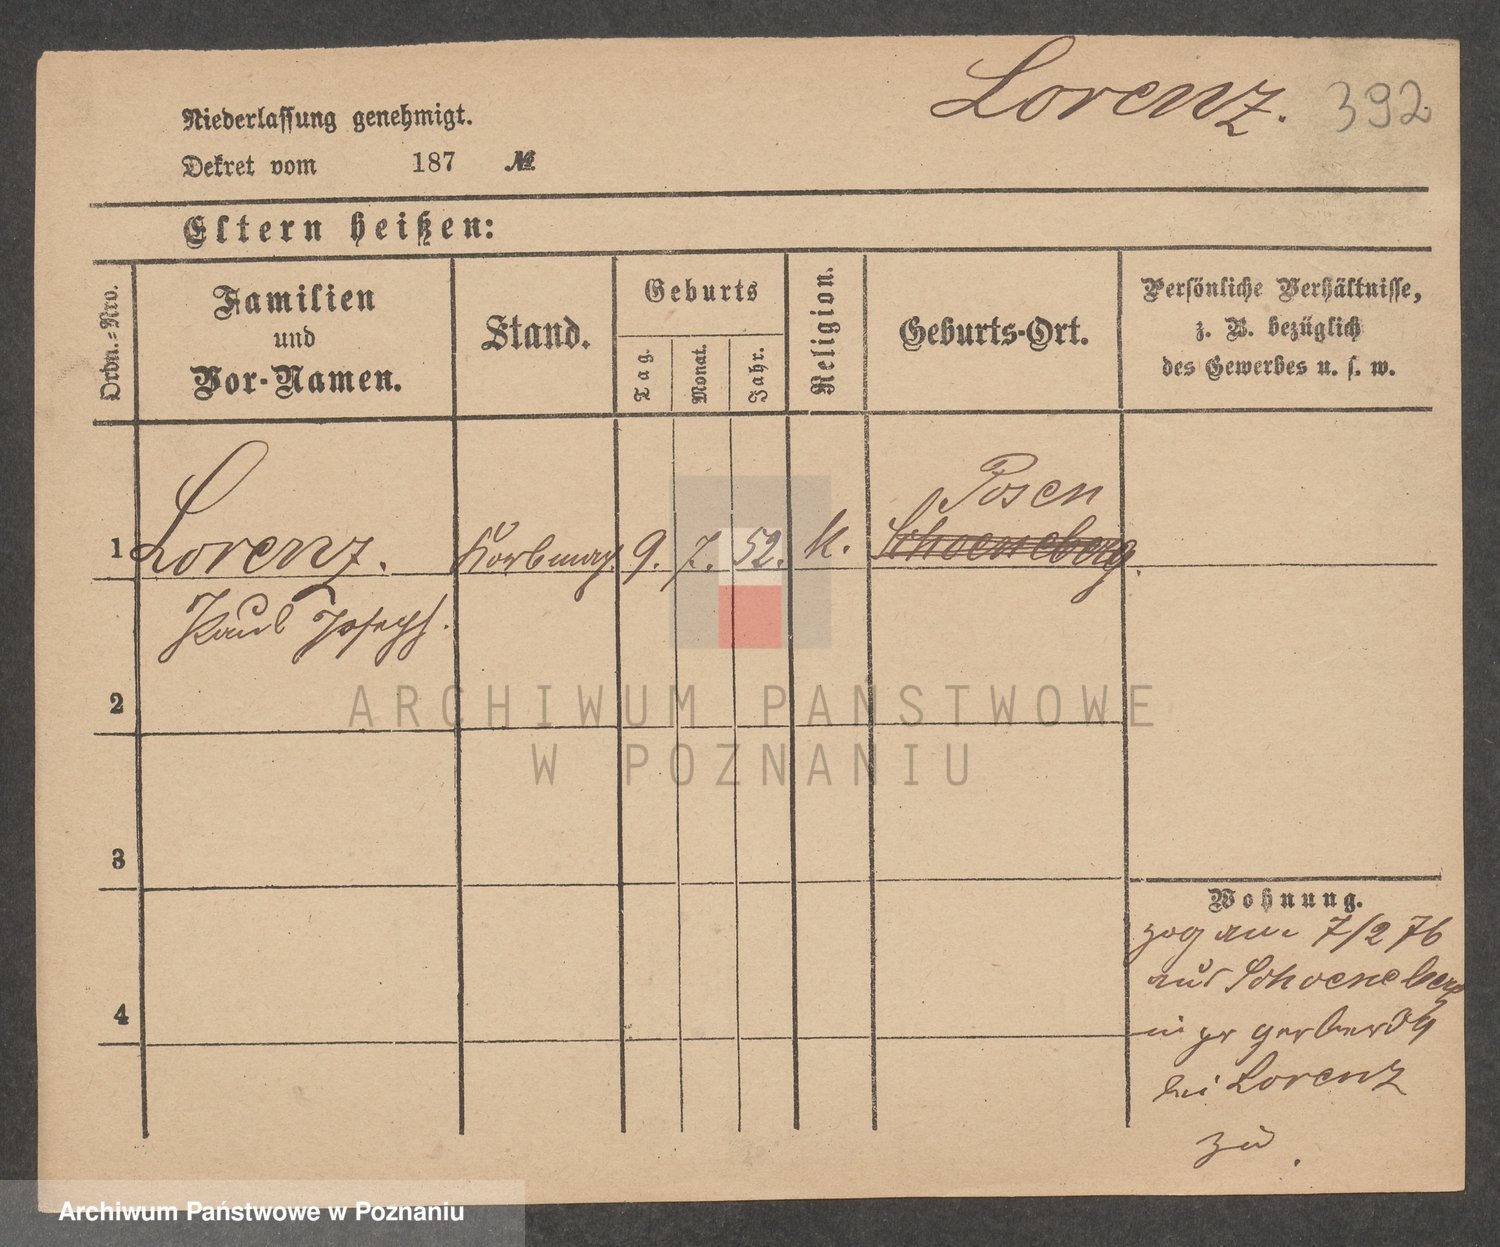 Lorenz. 392
Niederlassung genehmigt.
Dekret vom 187 №
Eltern heißen:
Ordn.=Nro.
Familien
und
Vor-Namen.
Stand.
Geburts
Tag.
Monat.
Jahr.
Religion.
Geburts-Ort.
Persönliche Verhältnisse,
z. B. bezüglich
des Gewerbes u. s. w.
Posen
1 Lorenz. Korbmach. 9. 7. 52. k. Schoeneberg.
Paul Joseph.
2
3
4
Wohnung.
zog am 7/2 76
aus Schoeneberg
in gr gerber
bei Lorenz
zu.
ARCHIWUM PAŃSTWOWE
W POZNANIU
Archiwum Państwowe w Poznaniu